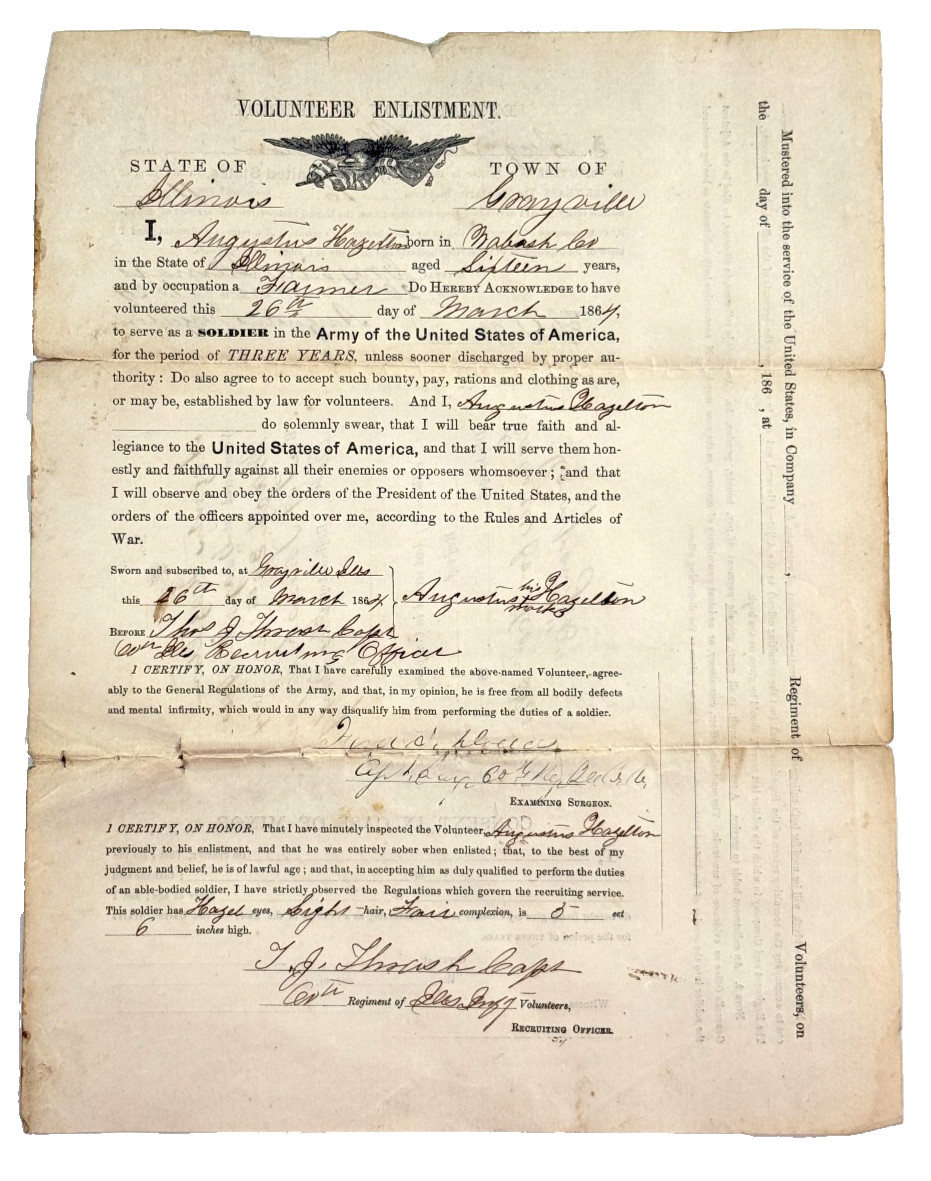 VOLUNTEER ENLISTMENT.
STATE OF TOWN OF
Illinois Grayville
I, Augustus Hazelton born in Wabash Co
in the State of Illinois aged Sixteen years,
and by occupation a Farmer Do HEREBY ACKNOWLEDGE to have
volunteered this 26th day of March 1864,
to serve as a SOLDIER in the Army of the United States of America,
for the period of THREE YEARS, unless sooner discharged by proper au-
thority: Do also agree to to accept such bounty, pay, rations and clothing as are,
or may be, established by law for volunteers. And I, Augustus Hazelton
do solemnly swear, that I will bear true faith and al-
legiance to the United States of America, and that I will serve them hon-
estly and faithfully against all their enemies or opposers whomsoever; and that
I will observe and obey the orders of the President of the United States, and the
orders of the officers appointed over me, according to the Rules and Articles of
War.
Sworn and subscribed to, at Grayville Ills
this 26th day of March 1864 Augustus his x mark Hazelton
BEFORE Thos J Thrash Capt
60th Ills Recruiting Officer
I CERTIFY, ON HONOR, That I have carefully examined the above-named Volunteer, agree-
ably to the General Regulations of the Army, and that, in my opinion, he is free from all bodily defects
and mental infirmity, which would in any way disqualify him from performing the duties of a soldier.
60
EXAMINING SURGEON.
I CERTIFY, ON HONOR, That I have minutely inspected the Volunteer, Augustus Hazelton
previously to his enlistment, and that he was entirely sober when enlisted; that, to the best of my
judgment and belief, he is of lawful age; and that, in accepting him as duly qualified to perform the duties
of an able-bodied soldier, I have strictly observed the Regulations which govern the recruiting service.
This soldier has Hazel eyes, Light hair, Fair complexion, is 5 eet
6 inches high.
T. J. Thrash Capt
60th Regiment of Ills Infy Volunteers,
RECRUITING OFFICER.
Mustered into the service of the United States, in Company , Regiment of Volunteers, on
the day of , 186 , at